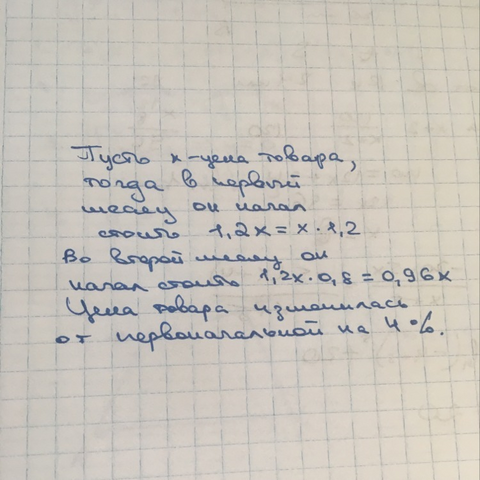 Пусть x - цена товара,
тогда в первый
месяц он начал
стоить 1,2x = x · 1,2
Во второй месяц он
начал стоить 1,2x · 0,8 = 0,96x
Цена товара изменилась
от первоначальной на 4%.